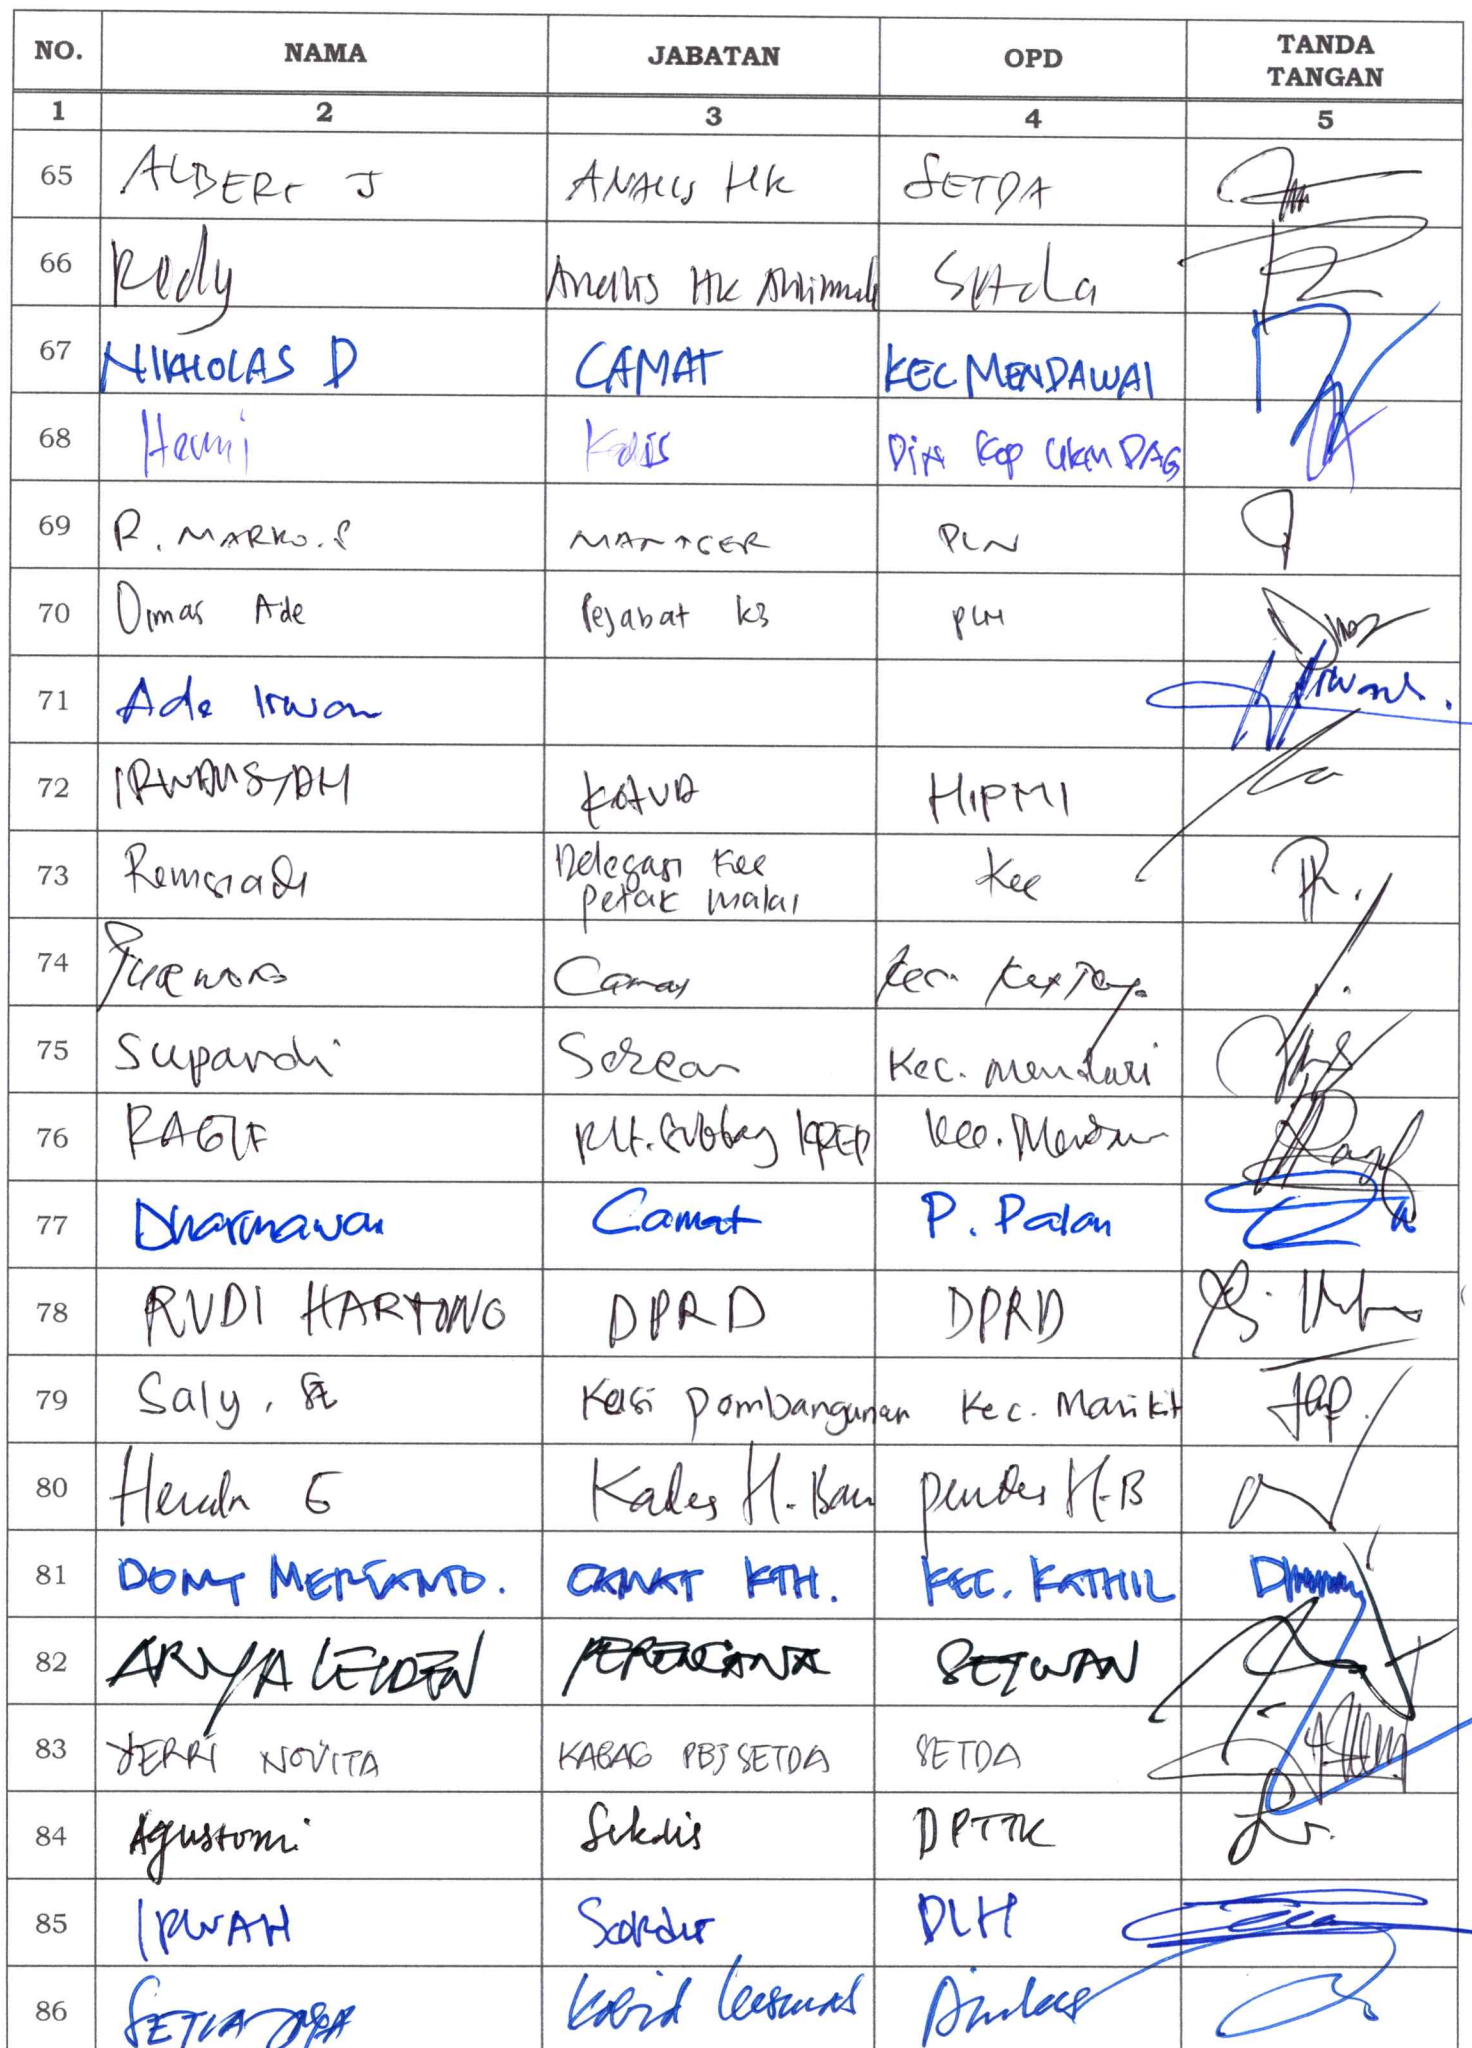 NO. NAMA JABATAN OPD TANDA TANGAN
1 2 3 4 5
65 ALBERT J ANALIS HK SETDA
66 Rody Analis HK SETDA
67 NIKHOLAS D CAMAT KEC MENDAWAI
68 Hermi Kadis Din Kop UKM DAG
69 R. MARKO.S MANAGER PLN
70 Dimas Ade Pejabat K3 PLN
71 Ade Irwan Irwan
72 IRWANSYAH KETUA HIPMI
73 Delegasi Kec Petak Malai Kec
74 Purwono Camat Kec.
75 Supardi Sekcam Kec.
76 RAGIF Plt. Subbag Kec.
77 Dharmawan Camat P. Patan
78 RUDI HARTONO DPRD DPRD
79 Saly, SE Kasi Pembangunan Kec. Marikit
80 Kades H. Pemdes H.B
81 DONY MERIANTO. CAMAT KTH. KEC. KATHIL
82 ARYA LEIDEN PERENCANA SETWAN
83 YERRI NOVITA KABAG PBJ SETDA SETDA
84 Agustomi Sekdis DPTTK
85 IRWAN DLH
86 SETIA Kabid